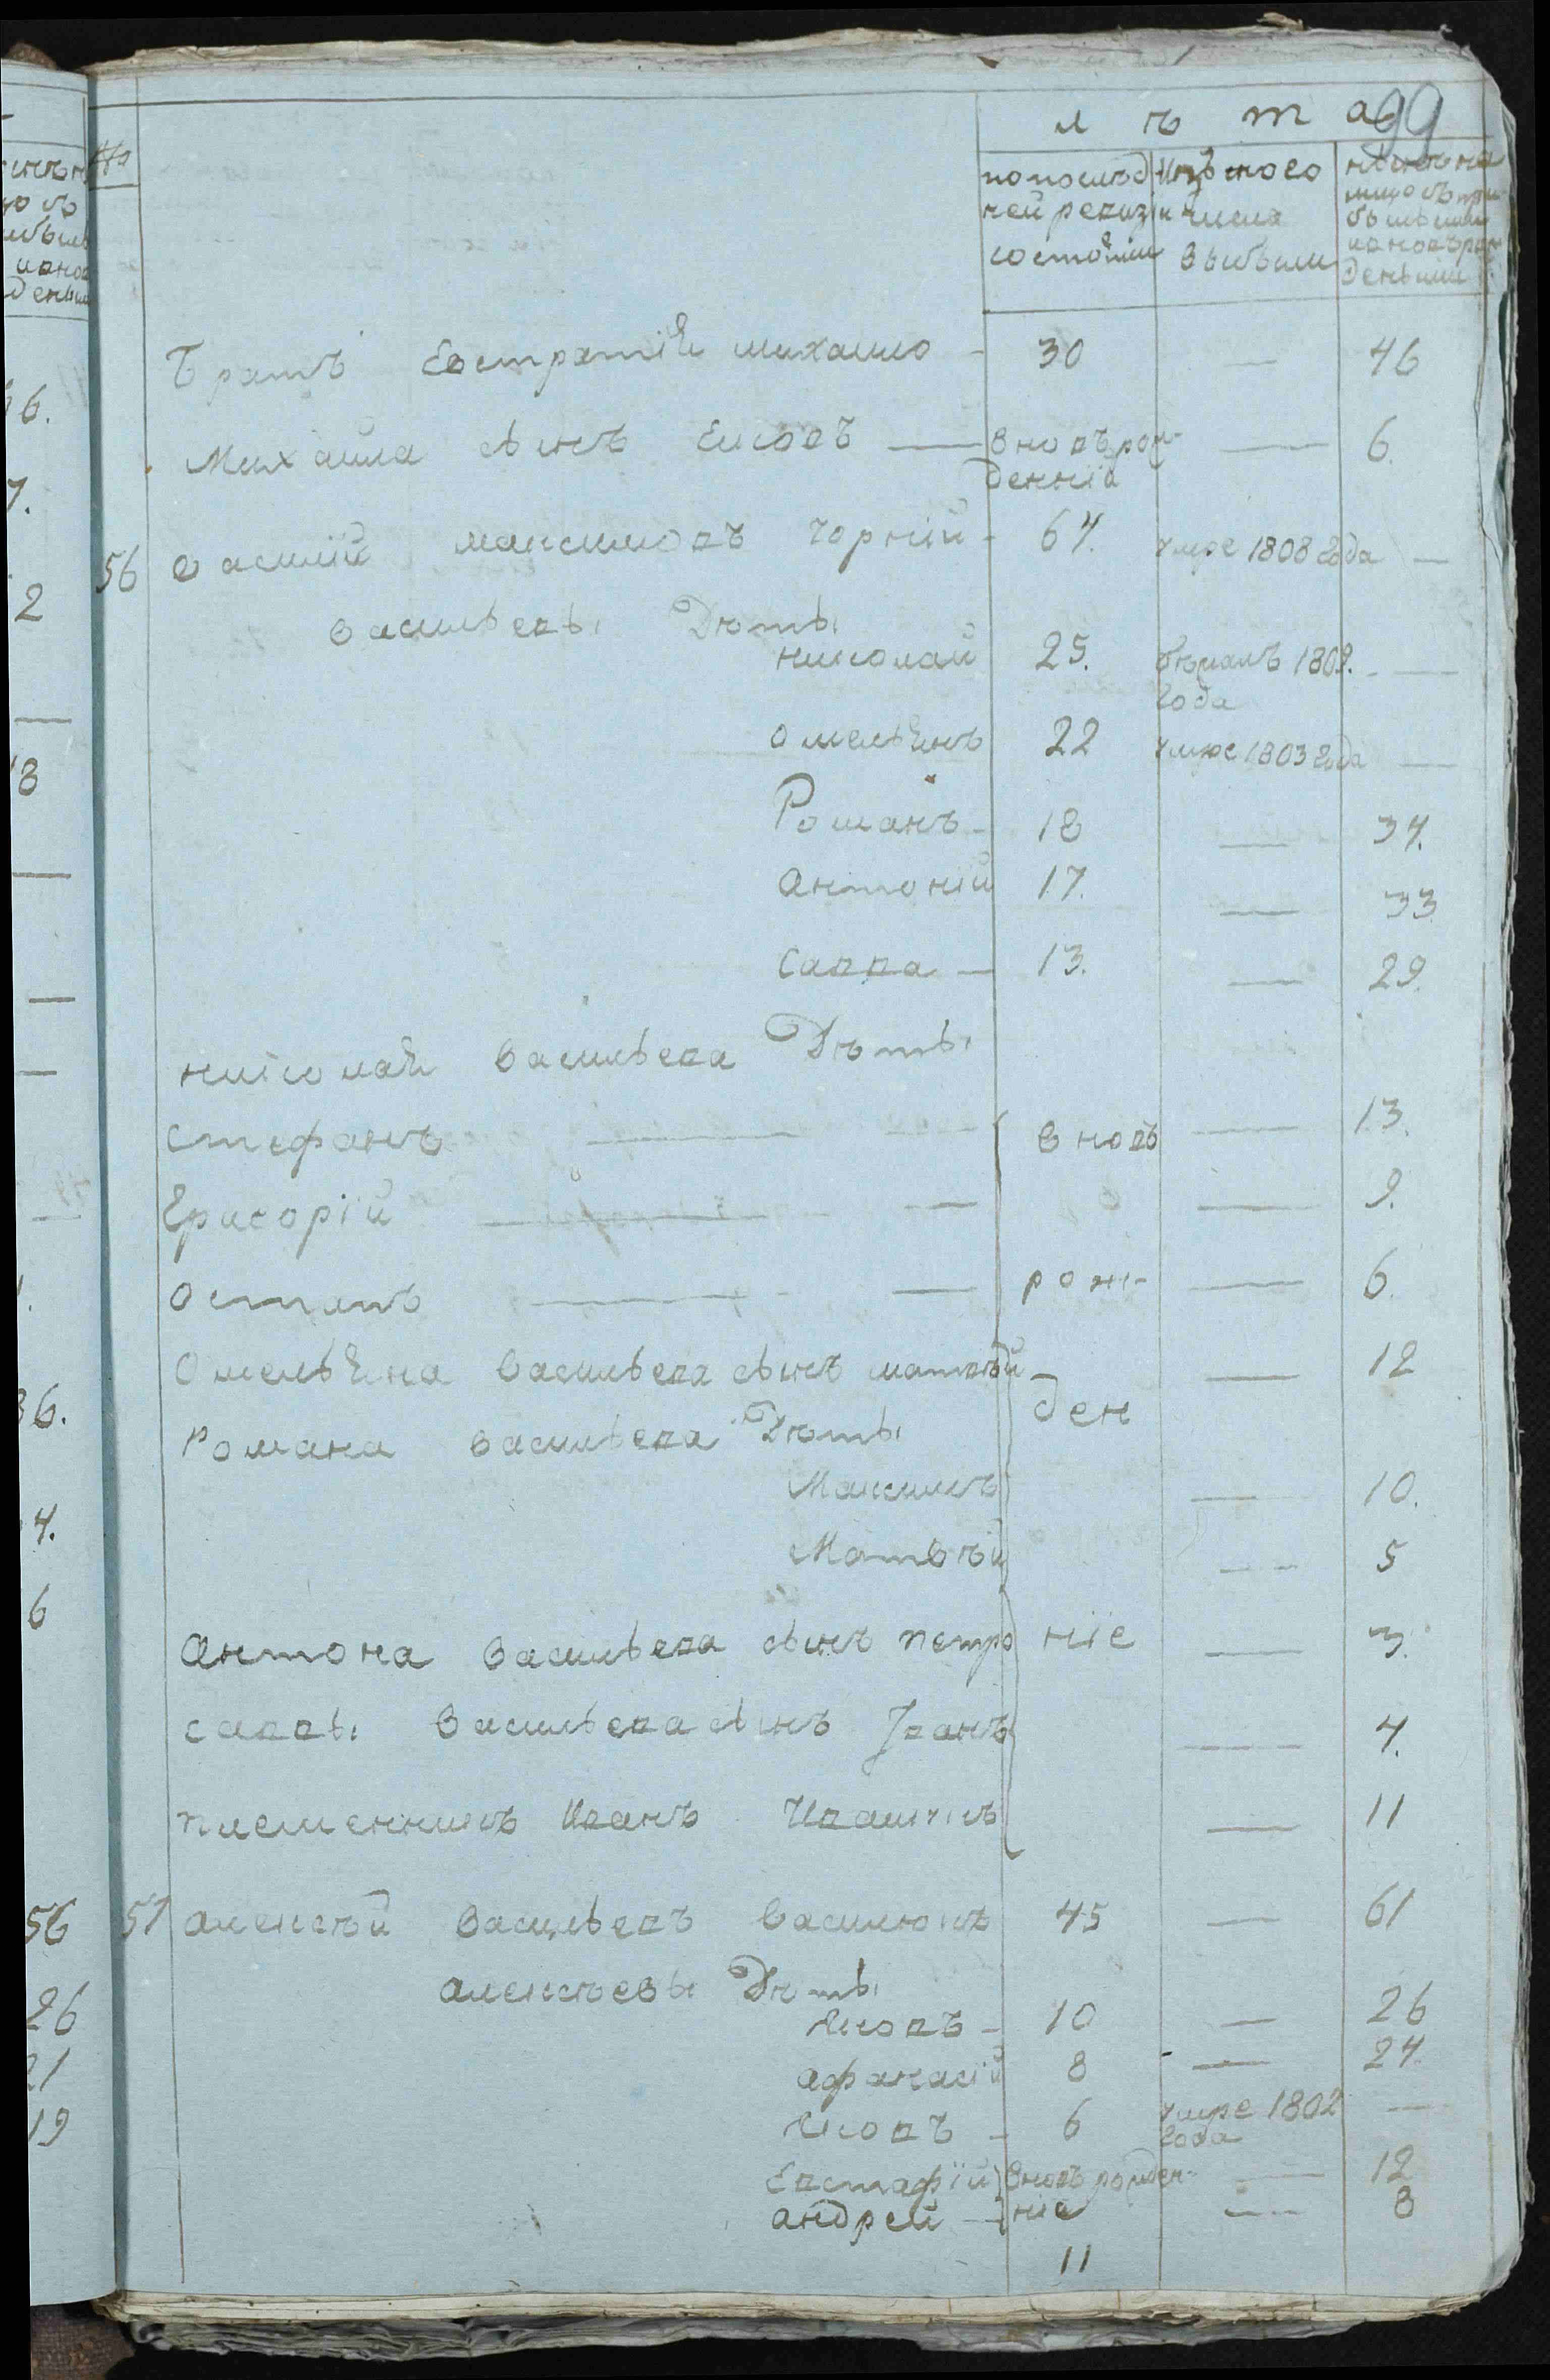 99
лѣта
№
по послѣд
ней ревизи
состояли
Изъ того
числа
выбыли
Нынѣ на
лицо съ при
бывшими
и вновь рож
денными
Братъ Евстратій Михайло - 30 — 46
Михайла сынъ Яковъ — вновь рож- — 6.
денніа
56 Василій Максимовъ Чорній - 64. умре 1808 года —
Васильевы Дѣты
Николай 25. бѣжалъ 1809. —
года
Омельянъ 22 умре 1803 года —
Романъ - 18 — 34.
Антоній 17. — 33
Савва — 13. — 29.
Николая Васильева Дѣты
Стефанъ — вновь — 13.
Григорій — — 9.
Остапъ — рож- — 6.
Омельяна Васильева сынъ Матвѣй — 12
ден
Романа Васильева Дѣты
Максимъ — 10.
Матвѣй — 5
Антона Васильева сынъ Петро ніе — 3.
Саввы Васильева сынъ Іванъ — 4.
племенникъ Иванъ — 11
57 Алексѣй Васильевъ Василюкъ 45 — 61
Алексѣевы Дѣты
Яковъ - 10 — 26
Афанасій 8 — 24.
Яковъ - 6 умре 1802 —
года
Евстафій вновь рожден- — 12
Андрей — ніа — 8
11